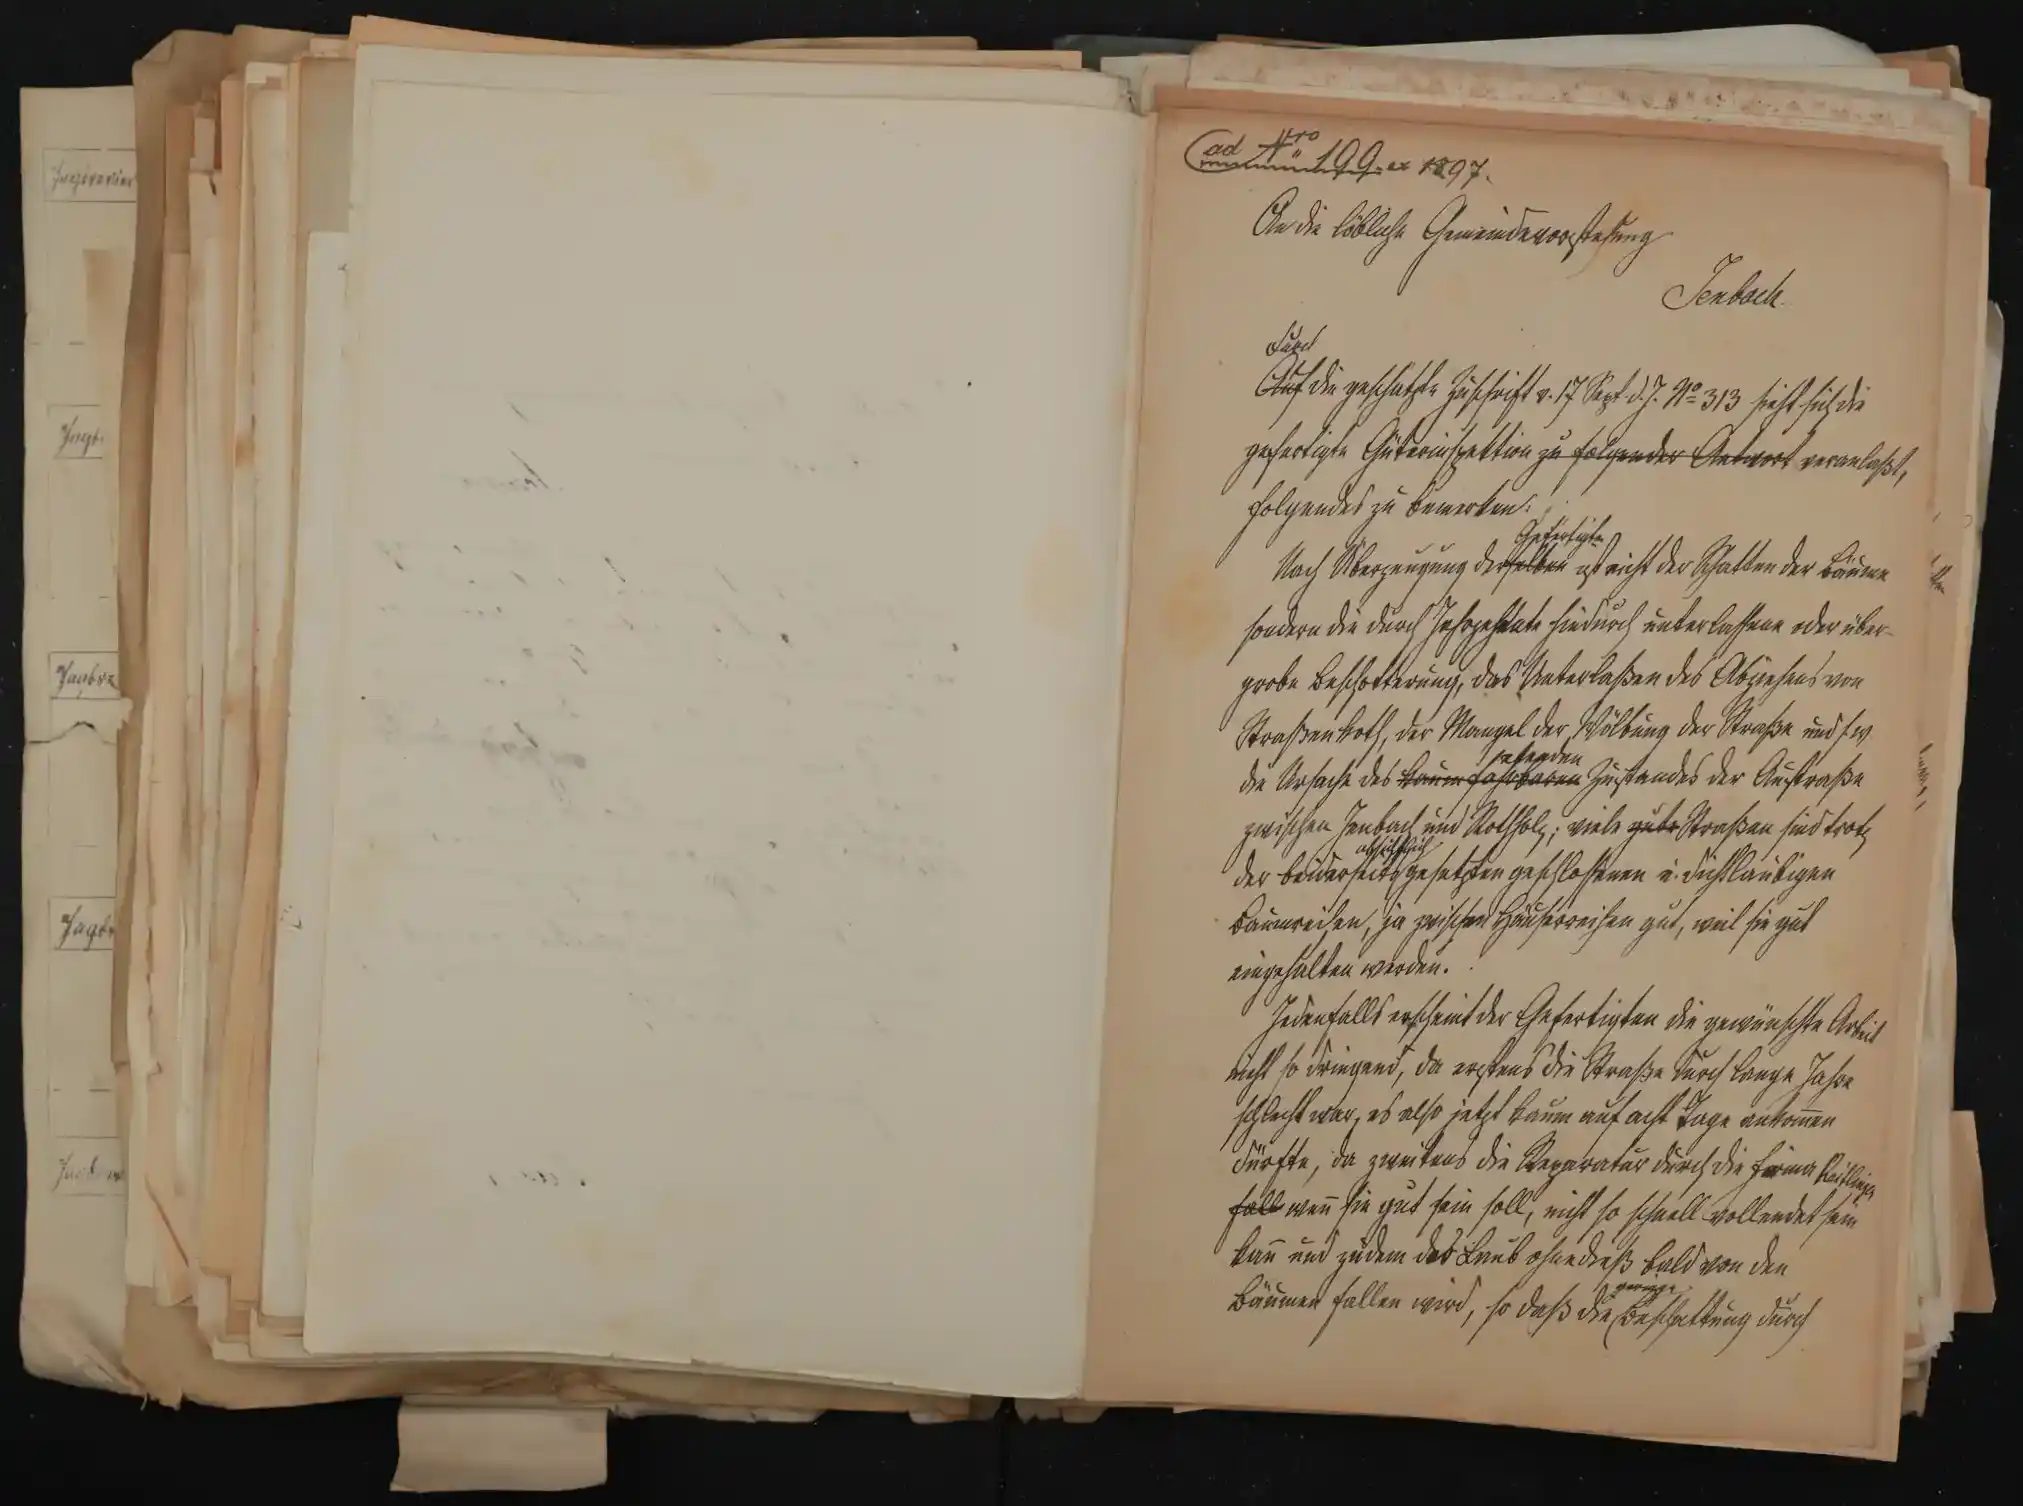 Jagdrevier
Jagd
Jagdre
Jagdr
ad Nro 199 ex 1897.
An die löbliche Gemeindevorstehung
Jenbach.
Durch
Auf die geschätzte Zuschrift v. 17 Sept. d. J. No 313 sieht sich die
gefertigte Güterinspektion zu folgender Antwort veranlaßt,
folgendes zu bemerken:
Gefertigten
Nach Überzeugung derselben ist nicht der Schatten der Bäume
sondern die durch Jahrzehnte hindurch unterlassene oder über-
grobe Beschotterung, das Unterlaßen des Abziehens von
Straßenkoth, der Mangel der Wölbung der Straße und s w
die Ursache des kaum fahrbaren Zustandes der Austraße
zwischen Jenbach und Rothholz; viele gute Straßen sind trotz
absichtlich
der beiderseits gesetzten geschlossenen u. dichtlaubigen
Baumreihen, ja zwischen Häuserreihen gut, weil sie gut
eingehalten werden.
Jedenfalls erscheint der Gefertigten die gewünschte Arbeit
nicht so dringend, da erstens die Straße durch lange Jahre
schlecht war, es also jetzt kaum auf acht Tage ankom̅en
dürfte, da zweitens die Reparatur durch die Firma
soll wen̅ sie gut sein soll, nicht so schnell vollendet sein
kan̅ und zudem das Laub ohnedieß bald von den
geringe
Bäumen fallen wird, so daß die Beschattung durch